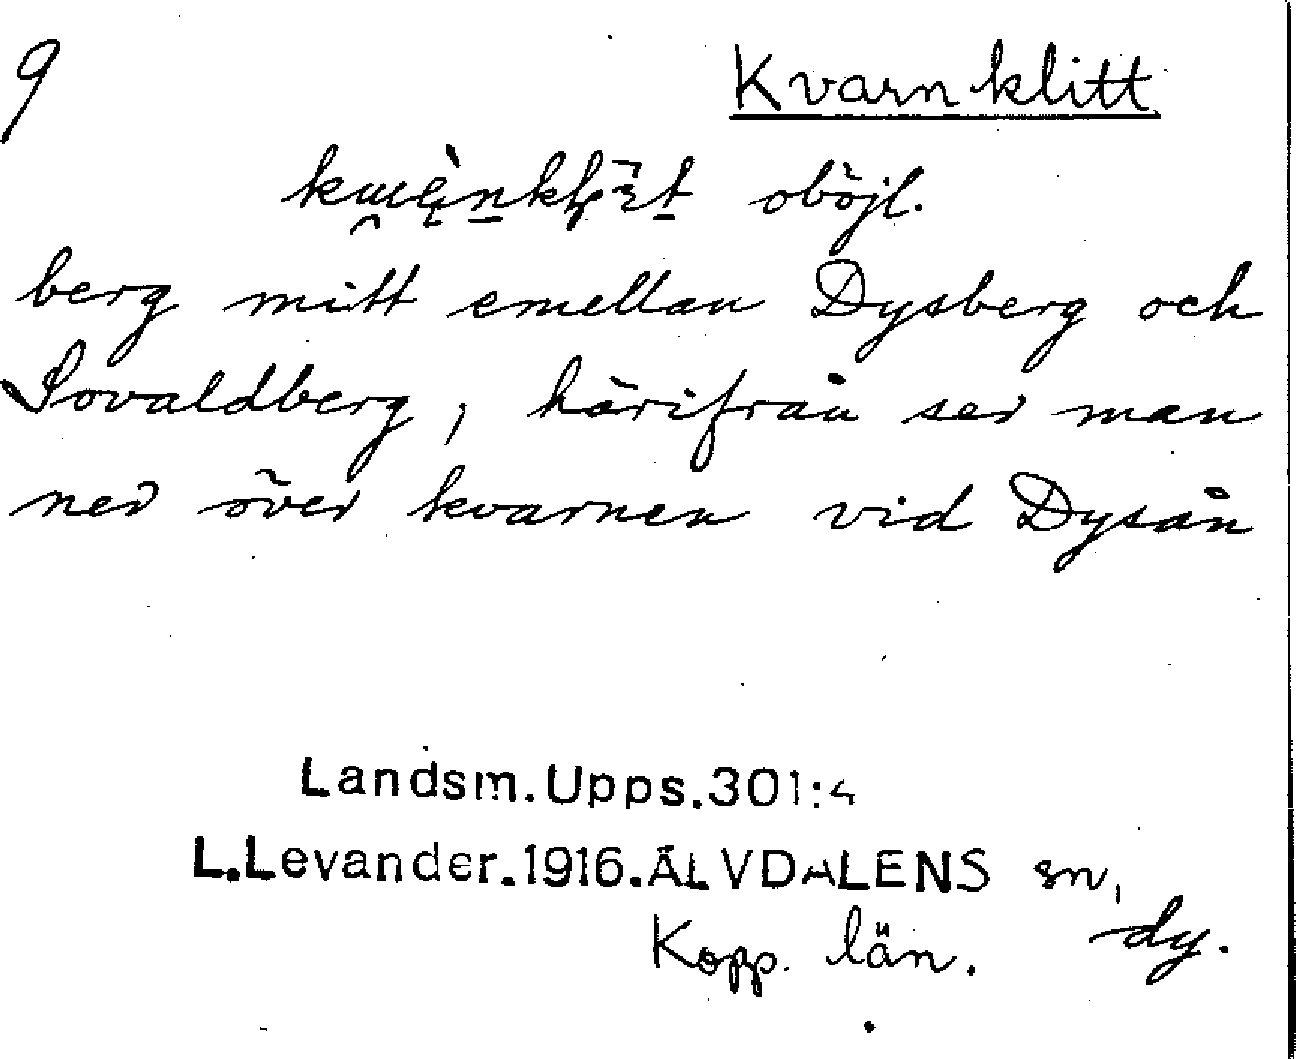 9
Kvarnklitt
oböjl.
berg mitt emellan Dysberg och
Sovaldberg, härifrån ser man
ned över kvarnen vid Dysån
Landsm.Upps.301:4
L.Levander.1916.ÄLVDALENS sn,
Kopp. län. dy.